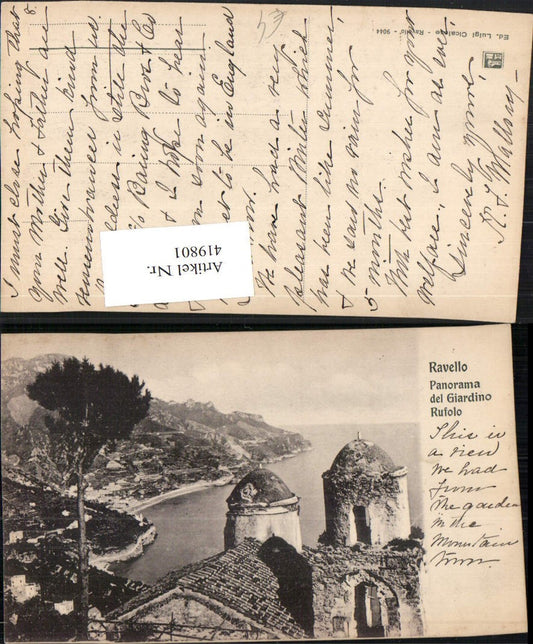 8
I must close hoping that
your Mother & Father are
well. Give them kind
remembrances from us
address is still the
c/o Baring Bros & Co
& I hope to hear
soon again
to be in England
We have had a very
pleasant Winter which
has been like summer,
& we said no rain for
5 months.
With best wishes for your
welfare, I am as ever
Sincerely yours,
Ed. Luigi Cicalese - Ravello - 9044
Artikel Nr.
419801
Ravello
Panorama
del Giardino
Rufolo
This is
a view
we had
from
the garden
in the
Mountain
town